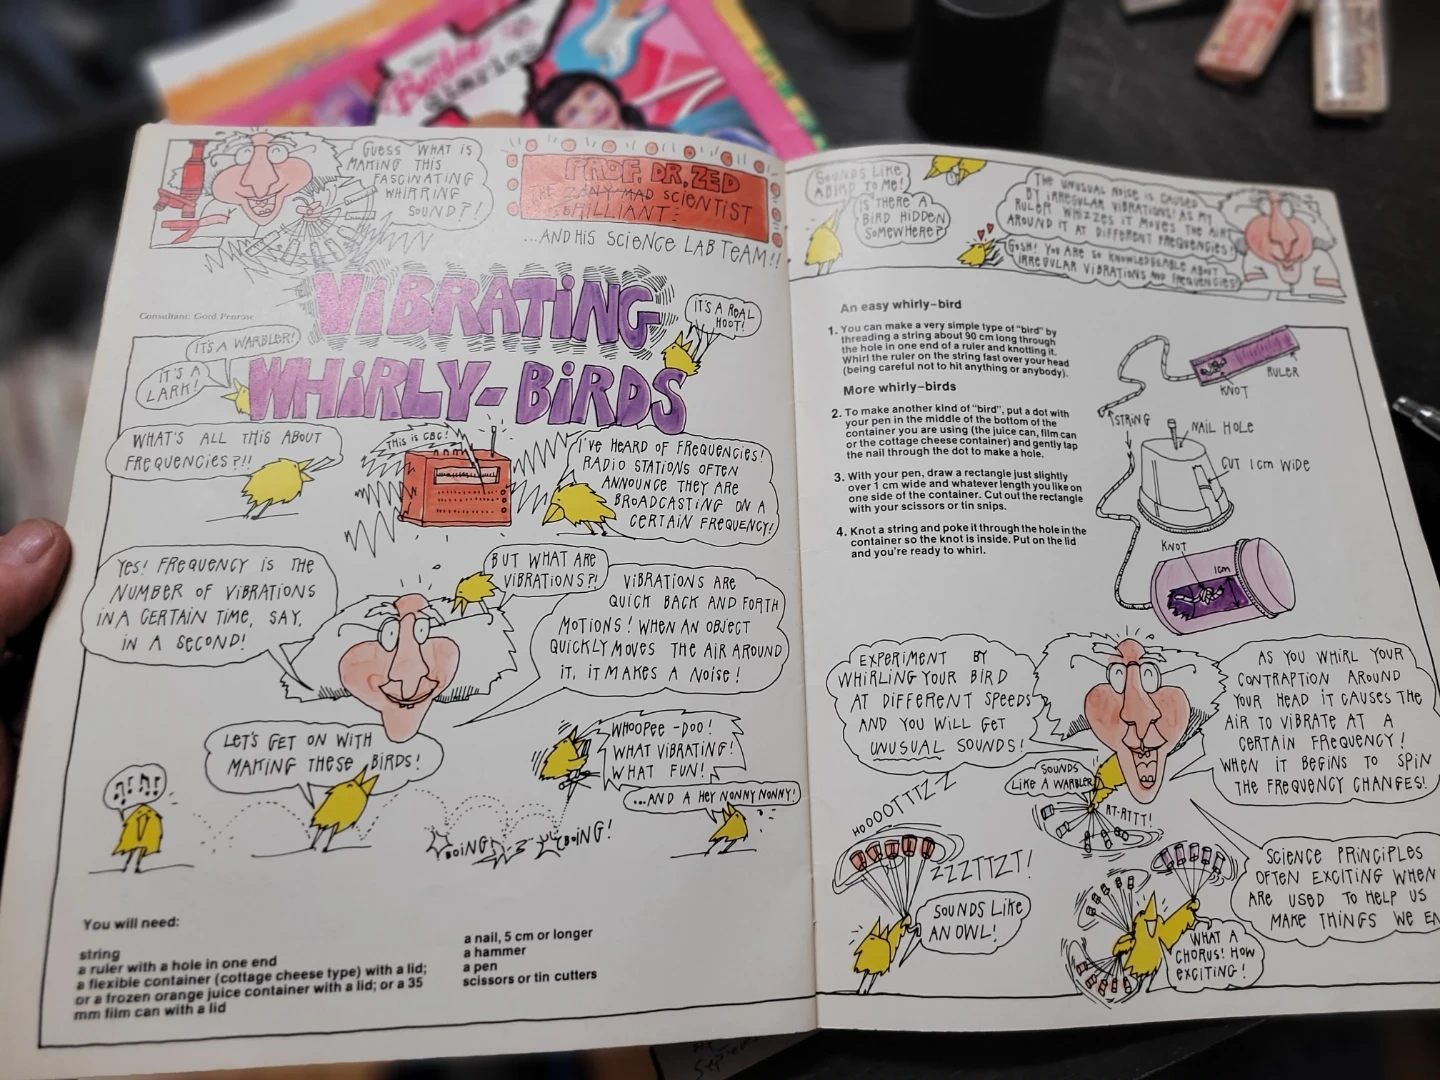 Barbie
GUESS WHAT IS
MAKING THIS
FASCINATING
WHIRRING
SOUND?!
PROF. DR. ZED
THE ZANY MAD SCIENTIST
BRILLIANT
...AND HIS SCIENCE LAB TEAM!!
Consultant: Gord Penrose
VIBRATING
WHIRLY-BIRDS
IT'S A WARBLER!
IT'S A
LARK!
IT'S A REAL
HOOT!
WHAT'S ALL THIS ABOUT
FREQUENCIES?!!
THIS IS CBC!
I'VE HEARD OF FREQUENCIES!
RADIO STATIONS OFTEN
ANNOUNCE THEY ARE
BROADCASTING ON A
CERTAIN FREQUENCY!
YES! FREQUENCY IS THE
NUMBER OF VIBRATIONS
IN A CERTAIN TIME, SAY,
IN A SECOND!
BUT WHAT ARE
VIBRATIONS?!
VIBRATIONS ARE
QUICK BACK AND FORTH
MOTIONS! WHEN AN OBJECT
QUICKLY MOVES THE AIR AROUND
IT, IT MAKES A NOISE!
LET'S GET ON WITH
MAKING THESE BIRDS!
WHOOPEE-DOO!
WHAT VIBRATING!
WHAT FUN!
...AND A HEY NONNY NONNY!
BOING!
BOING!
You will need:
string
a ruler with a hole in one end
a flexible container (cottage cheese type) with a lid;
or a frozen orange juice container with a lid; or a 35
mm film can with a lid
a nail, 5 cm or longer
a hammer
a pen
scissors or tin cutters
SOUNDS LIKE
A BIRD TO ME!
IS THERE A
BIRD HIDDEN
SOMEWHERE?
THE UNUSUAL NOISE IS CAUSED
BY IRREGULAR VIBRATIONS! AS MY
RULER WHIZZES IT MOVES THE AIR
AROUND IT AT DIFFERENT FREQUENCIES!
GOSH! YOU ARE SO KNOWLEDGEABLE ABOUT
IRREGULAR VIBRATIONS AND FREQUENCIES!
An easy whirly-bird
1. You can make a very simple type of "bird" by
threading a string about 90 cm long through
the hole in one end of a ruler and knotting it.
Whirl the ruler on the string fast over your head
(being careful not to hit anything or anybody).
More whirly-birds
2. To make another kind of "bird", put a dot with
your pen in the middle of the bottom of the
container you are using (the juice can, film can
or the cottage cheese container) and gently tap
the nail through the dot to make a hole.
3. With your pen, draw a rectangle just slightly
over 1 cm wide and whatever length you like on
one side of the container. Cut out the rectangle
with your scissors or tin snips.
4. Knot a string and poke it through the hole in the
container so the knot is inside. Put on the lid
and you're ready to whirl.
RULER
KNOT
STRING
NAIL HOLE
CUT 1CM WIDE
KNOT
1CM
EXPERIMENT BY
WHIRLING YOUR BIRD
AT DIFFERENT SPEEDS
AND YOU WILL GET
UNUSUAL SOUNDS!
AS YOU WHIRL YOUR
CONTRAPTION AROUND
YOUR HEAD IT CAUSES THE
AIR TO VIBRATE AT A
CERTAIN FREQUENCY!
WHEN IT BEGINS TO SPIN
THE FREQUENCY CHANGES!
SOUNDS
LIKE A WARBLER
RT-RTTT!
HOOOOTTTZ-Z-Z
ZZZTTZT!
SOUNDS LIKE
AN OWL!
SCIENCE PRINCIPLES
OFTEN EXCITING WHEN
ARE USED TO HELP US
MAKE THINGS WE EN
WHAT A
CHORUS! HOW
EXCITING!